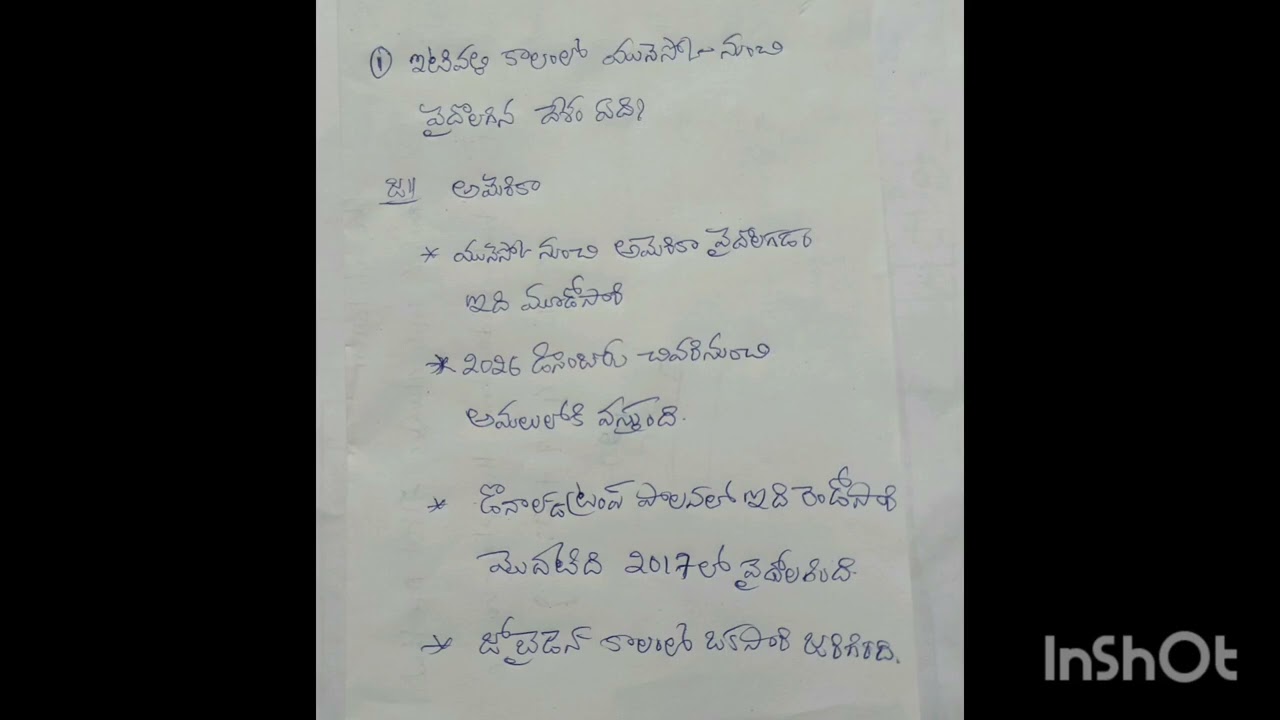 ① ఇటివళ కాలంలో యునెస్కో నుంచి
వైదొలగిన దేశం ఏది?
జ॥ అమెరికా
* యునెస్కో నుంచి అమెరికా వైదొలగడం
ఇది మూడోసారి
* 2026 డిసెంబరు చివరినుంచి
అమలులోకి వస్తుంది.
* డొనాల్డ్ ట్రంప్ పాలనలో ఇది రెండోసారి
మొదటిది 2017లో వైదొలగింది.
* జో బైడెన్ కాలంలో ఒకసారి జరిగింది.
InShOt